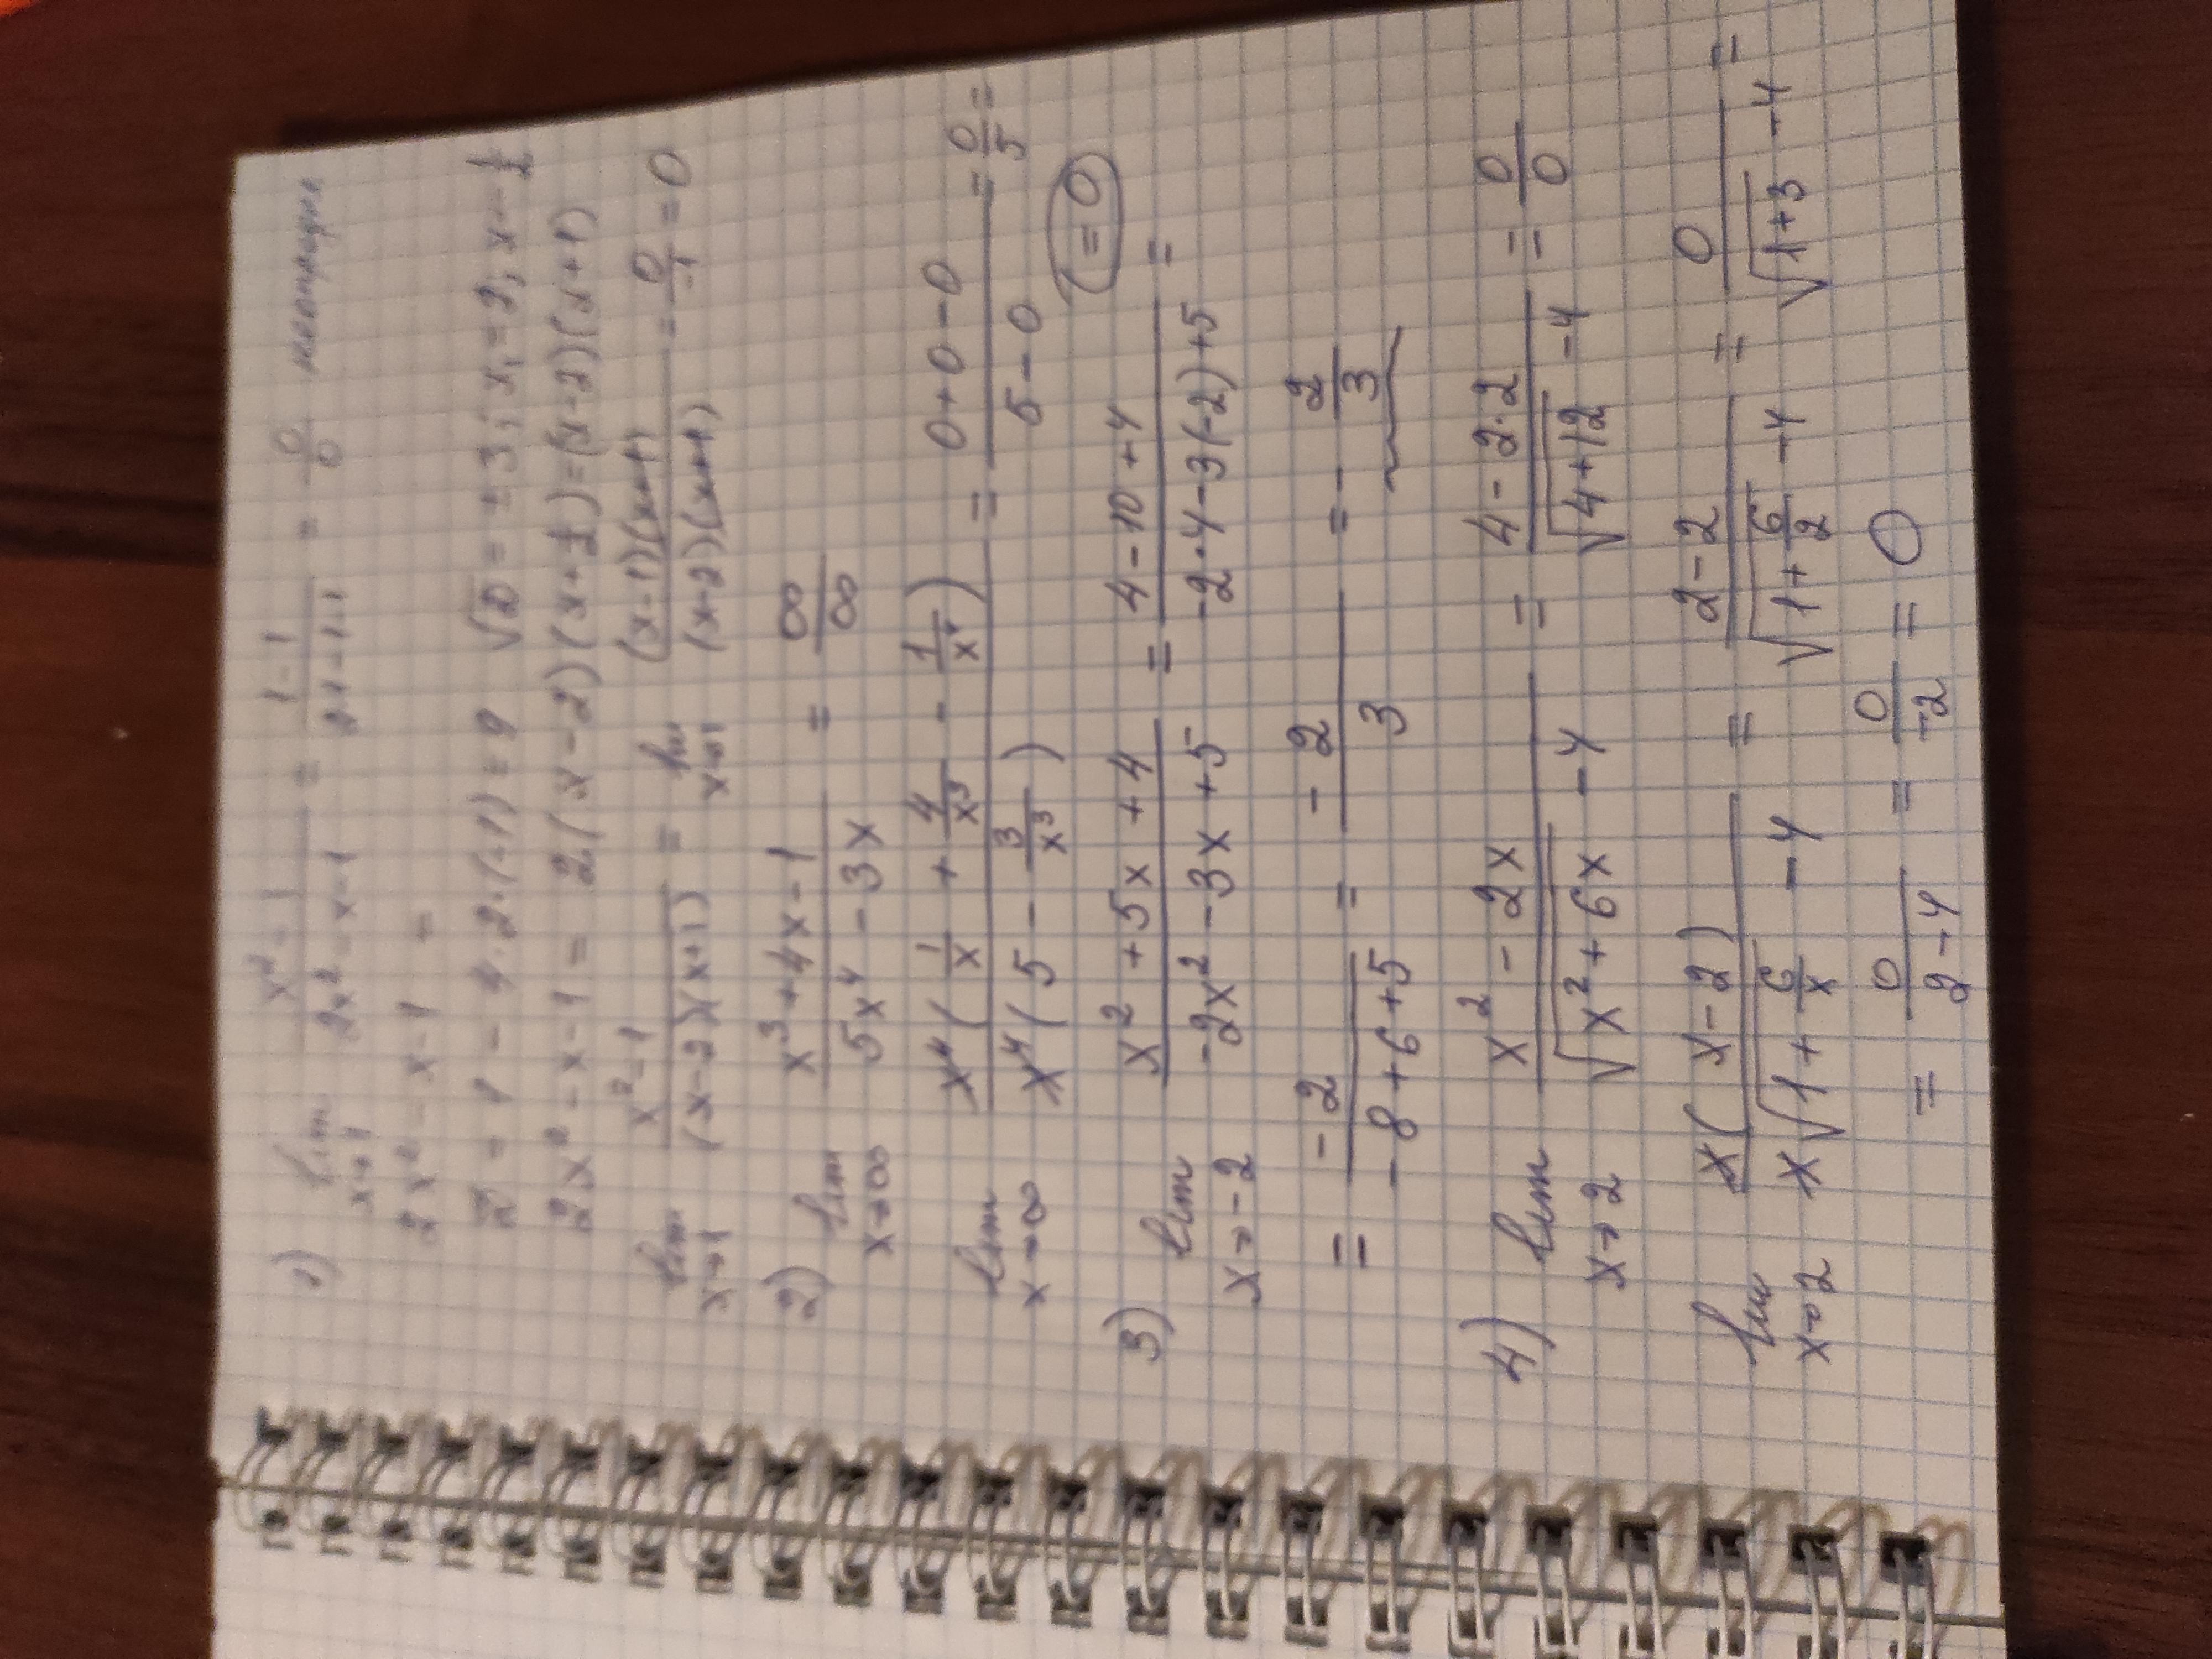 1) lim x→1 (x² - 1)/(2x² - x - 1) = (1 - 1)/(2·1 - 1 - 1) = 0/0
2x² - x - 1 =
D = 1 - 4·2·(-1) = 9 √D = ±3; x₁ = 2; x = -1/2
2x² - x - 1 = 2(x - 2)(x + 1/2) = (x - 2)(x + 1)
lim x→1 (x² - 1)/((x - 2)(x + 1)) = lim x→1 ((x - 1)(x + 1))/((x - 2)(x + 1)) = 0/-1 = 0
2) lim x→∞ (x³ + 4x - 1)/(5x⁴ - 3x) = ∞/∞
lim x→∞ (x⁴(1/x + 4/x³ - 1/x⁴))/(x⁴(5 - 3/x³)) = (0 + 0 - 0)/(5 - 0) = 0/5 =
(= 0)
3) lim x→-2 (x² + 5x + 4)/(-2x² - 3x + 5) = (4 - 10 + 4)/(-2·4 - 3(-2) + 5) =
= (-2)/(-8 + 6 + 5) = (-2)/3 = -2/3
4) lim x→2 (x² - 2x)/(√(x² + 6x) - 4) = (4 - 2·2)/(√(4 + 12) - 4) = 0/0
lim x→2 (x(x - 2))/(x√(1 + 6/x) - 4) = (2 - 2)/(√(1 + 6/2) - 4) = 0/(√(1 + 3) - 4) =
= 0/(2 - 4) = 0/-2 = 0